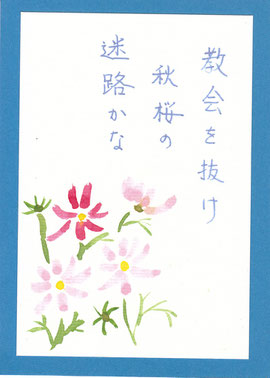 教会を抜け
秋桜の
迷路かな